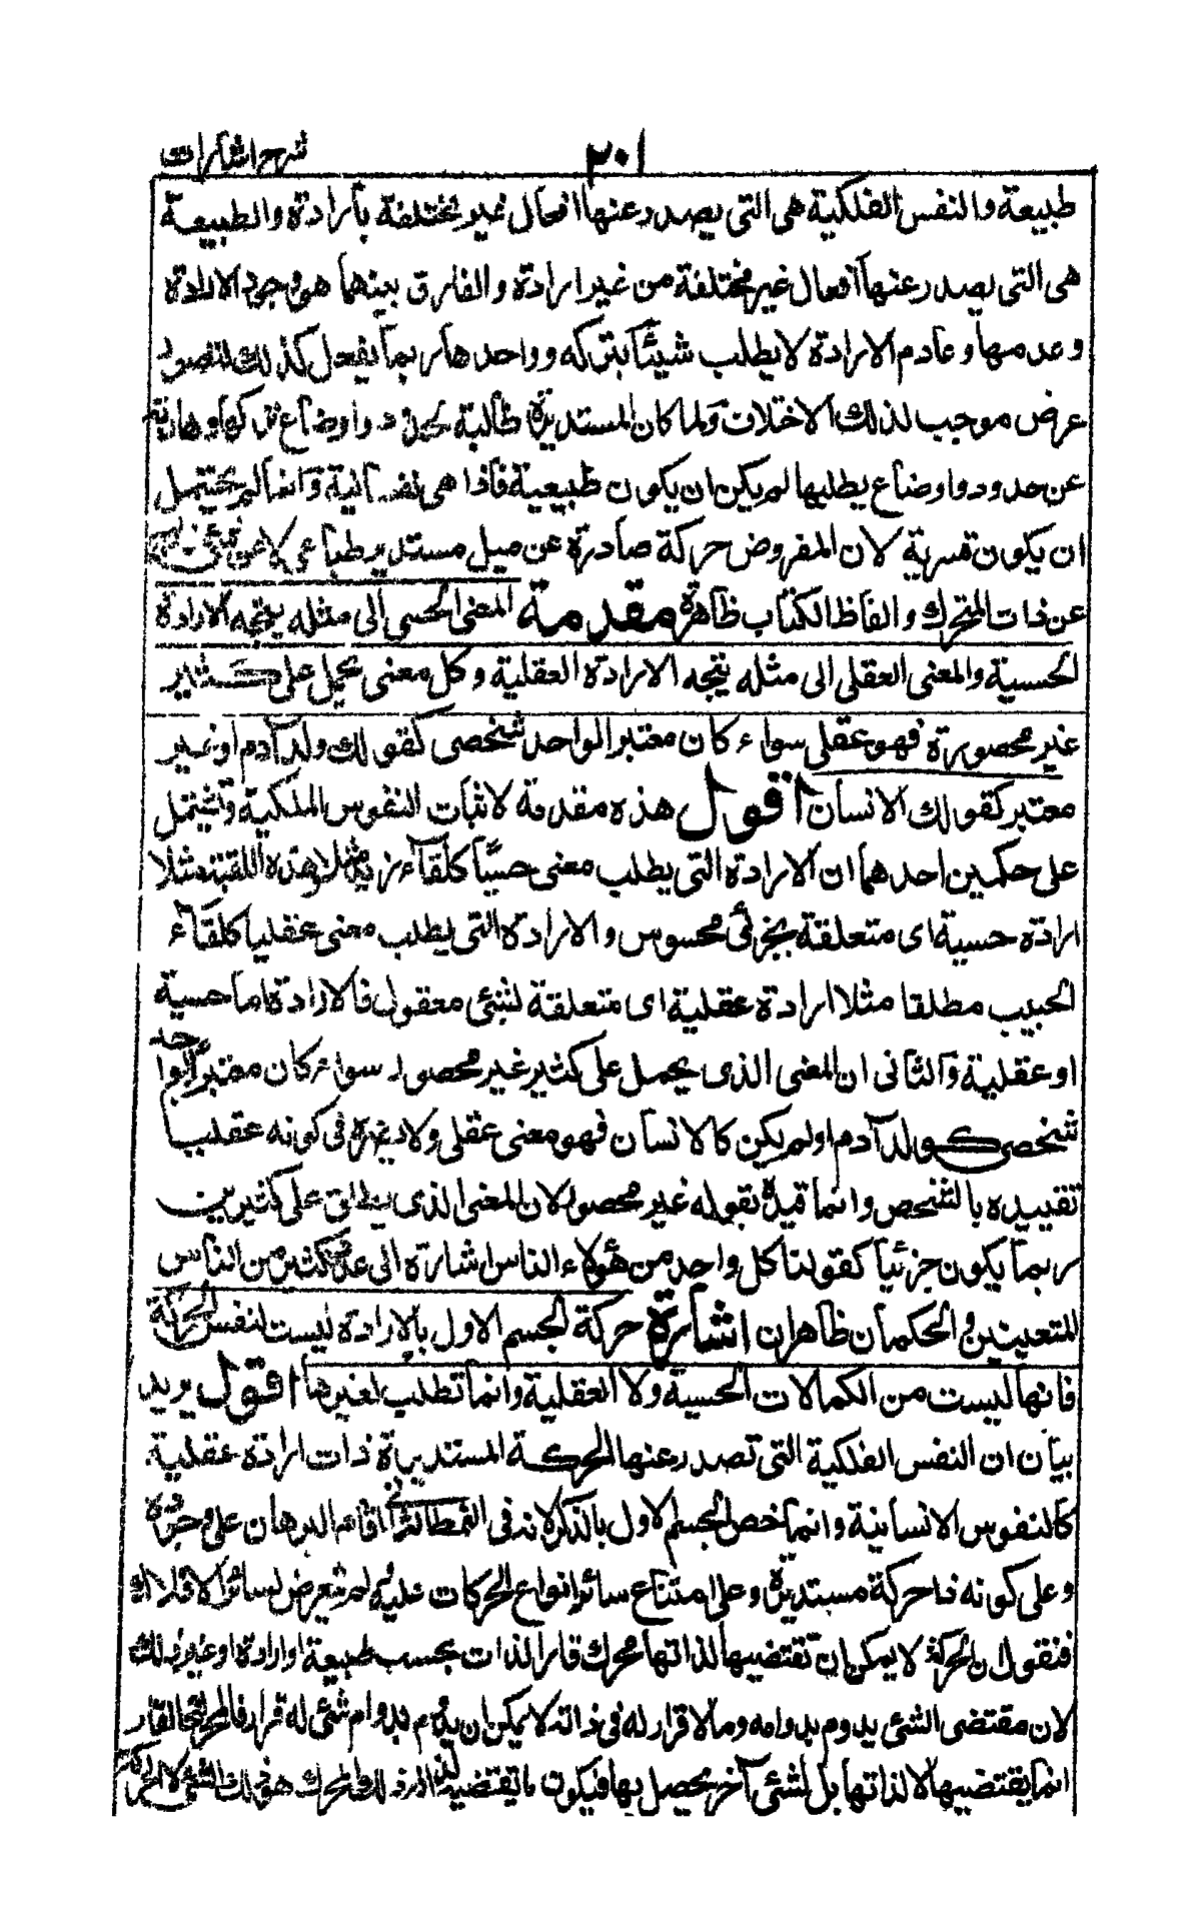 شرح اشارات
٢٠١
طبيعة والنفس الفلكية هى التى يصدر عنها افعال غير مختلفة بارادة والطبيعة
هى التى يصدر عنها افعال غير مختلفة من غير ارادة والفارق بينهما هو وجود الارادة
وعدمها وعادم الارادة لا يطلب شيئًا يتركه وواحدها ربما يفعل كذلك لتصور
عرض موجب لذلك الاختلاف ولما كان المستديرة طالبة لحدود واوضاع يتركها وهاربة
عن حدود واوضاع يطلبها لم يكن ان يكون طبيعية فاذا هى نفسانية وانما لم يحتمل
ان يكون قسرية لان المفروض حركة صادرة عن ميل مستدير طباعى لا عن شئ خارج
عن ذات المتحرك والفاظ الكتاب ظاهرة مقدمة المعنى الحسى الى مثله يتجه الارادة
الحسية والمعنى العقلى الى مثله يتجه الارادة العقلية وكل معنى يحمل على كثير
غير محصورة فهو عقلى سواء كان معتبر الواحد شخصى كقولك ولد آدم او غير
معتبر كقولك الانسان اقول هذه مقدمة لاثبات النفوس الملكية وتشتمل
على حكمين احدهما ان الارادة التى يطلب معنى حسيًا كلقاء زيد مثلا وهذه اللقية مثلا
ارادة حسية اى متعلقة بجزئى محسوس والارادة التى يطلب معنى عقليا كلقاء
الحبيب مطلقا مثلا ارادة عقلية اى متعلقة لشئ معقول فالارادة اما حسية
او عقلية والثانى ان المعنى الذى يحمل على كثير غير محصور سواء كان معتبر الواحد
شخصى كولد آدم او لم يكن كالانسان فهو معنى عقلى ولا يضره فى كونه عقليا
تقييده بالشخص وانما قيده بقوله غير محصور لان المعنى الذى يطلق على كثيرين
ربما يكون جزئيا كقولنا كل واحد من هؤلاء الناس اشارة الى عدد كثير من الناس
المتعينين والحكمان ظاهران اشارة حركة الجسم الاول بالارادة ليست لنفس الحركة
فانها ليست من الكمالات الحسية ولا العقلية وانما تطلب لغيرها اقول يريد
بيان ان النفس الفلكية التى تصدر عنها الحركة المستديرة ذات ارادة عقلية
كالنفوس الانسانية وانما خص الجسم الاول بالذكر لانه فى النمط الثانى اقام البرهان على وجوده
وعلى كونه ذا حركة مستديرة وعلى امتناع سائر انواع الحركات عليه لم يتعرض لسائر الافلاك
فنقول ان الحركة لا يمكن ان تقتضيها لذاتها محرك قار الذات بحسب طبيعة او ارادة او غير ذلك
لان مقتضى الشئ يدوم بدوامه وما لا قرار له فى ذاته لا يمكن ان يدوم بدوام شئ له قرار فالمحرك القار
انما يقتضيها لا لذاتها بل لشئ آخر يحصل بها فيكون ما يقتضيه لذاته ذلك المحرك هو ذلك الشئ لا الحركة